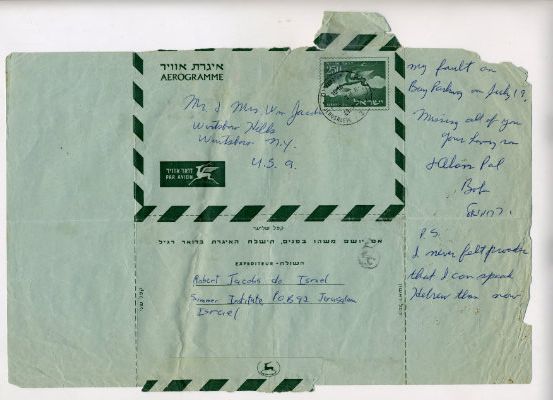 איגרת אוויר
AEROGRAMME
250
ישראל
JERUSALEM
Mr. & Mrs. Wm Jacobs
Wurtsboro Hills
Wurtsboro N.Y.
U.S.A.
דואר אוויר
PAR AVION
קפל שלישי
אם יושם משהו בפנים, תישלח האיגרת בדואר רגיל
השולח - EXPEDITEUR
Robert Jacobs do Israel
Summer Institute P.O.B 92 Jerusalem
Israel
קפל שני
my fault on
Bay Parkway on July 19.
Missing all of you
Your loving son
Bob
P.S.
I never felt prouder
that I can speak
Hebrew than now